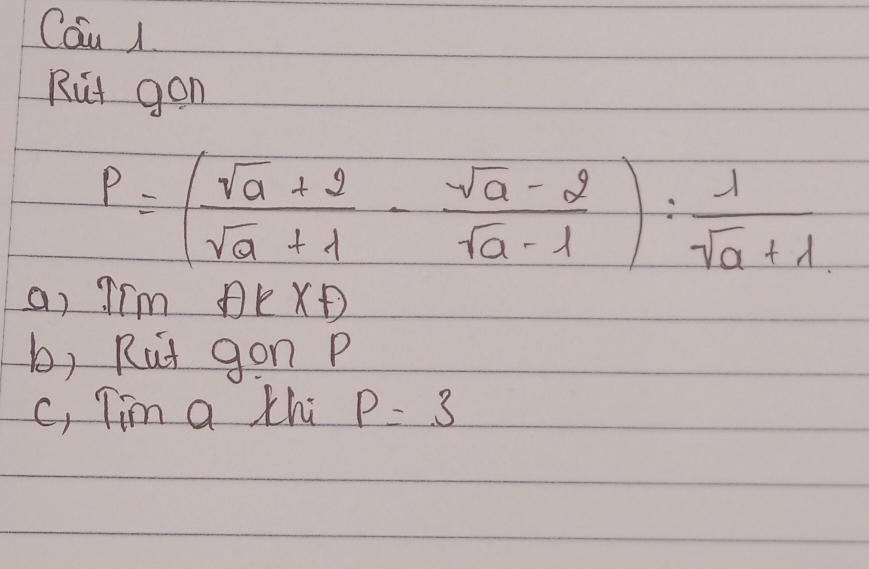 Câu 1.
Rút gọn
P = ( (√a + 2)/(√a + 1) - (√a - 2)/(√a - 1) ) : 1/(√a + 1).
a, Tìm ĐKXĐ
b, Rút gọn P
c, Tìm a khi P = 3